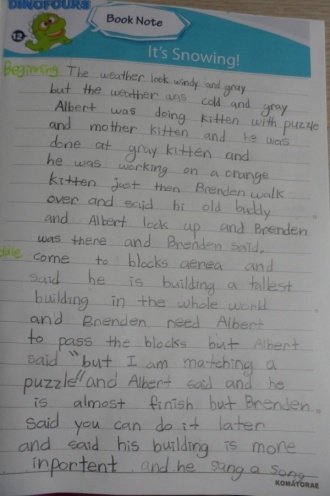 DINOFOURS
12
Book Note
It's Snowing!
Beginning The weather look windy and gray
but the weather was cold and gray
Albert was doing kitten with puzzle
and mother kitten and he was
done at gray kitten and
he was working on a orange
kitten just then Brenden walk
over and said hi old buddy
and Albert look up and Brenden
was there and Brenden said,
come to blocks aerea and
said he is building a tallest
building in the whole world
and Brenden need Albert
to pass the blocks but Albert
said "but I am matching a
puzzle" and Albert said and he
is almost finish but Brenden
said you can do it later
and said his building is more
inportent and he sang a song
KOMATORAE